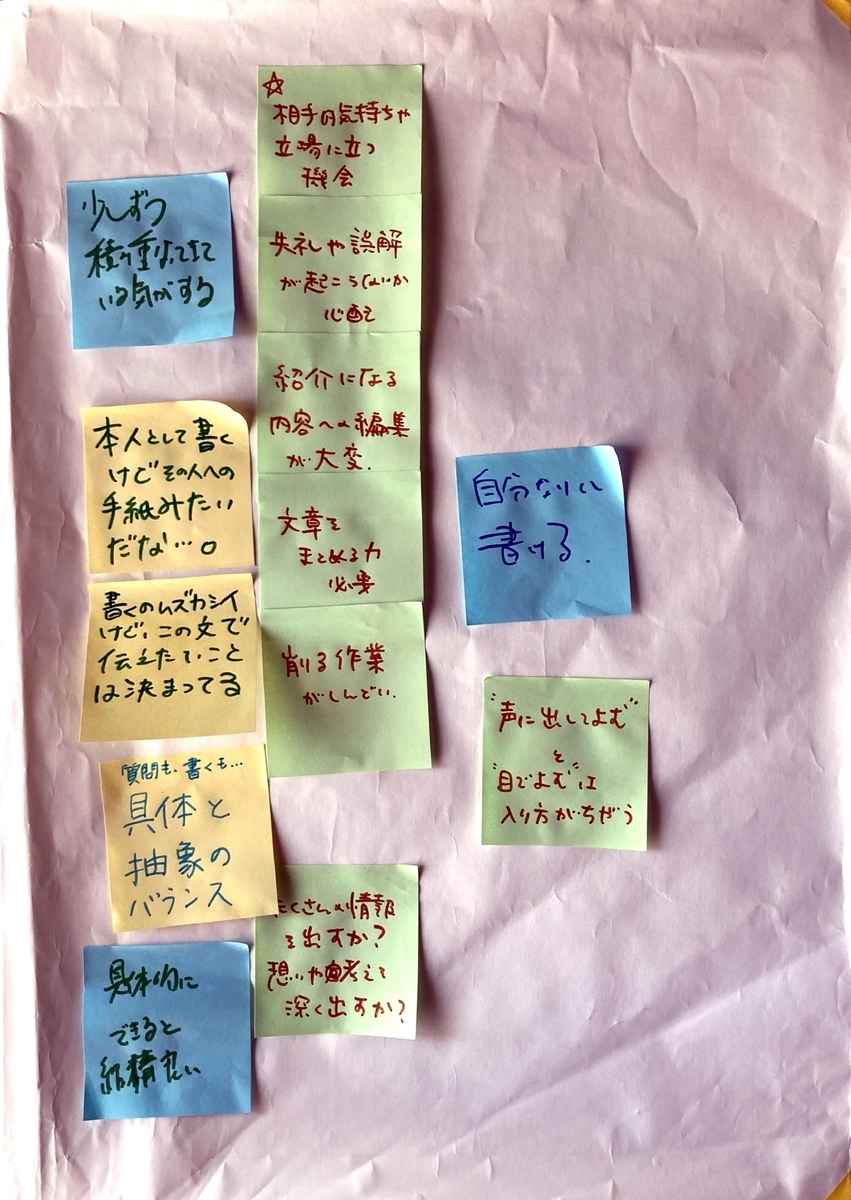 少しずつ
積り重なってきて
いる気がする
本人として書く
けどその人への
手紙みたい
だな…。
書くのムズカシイ
けど、この文で
伝えたいこと
は決まってる
質問も、書くも…
具体と
抽象の
バランス
具体的に
できると
結構良い
☆
相手の気持ちや
立場に立つ
機会
失礼や誤解
が起こらないか
心配
紹介になる
内容への編集
が大変.
文章を
まとめる力
必要
削る作業
がしんどい.
たくさんの情報
を出すか?
想いや考えを
深く出すか?
自分なりに
書ける.
"声に出してよむ"
と
"目でよむ"は
入り方がちがう